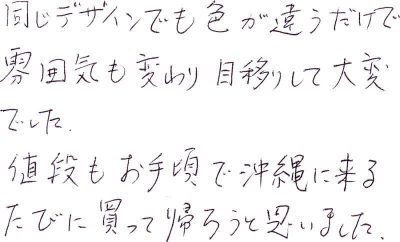 同じデザインでも色が違うだけで
雰囲気も変わり目移りして大変
でした.
値段もお手頃で沖縄に来る
たびに買って帰ろうと思いました.